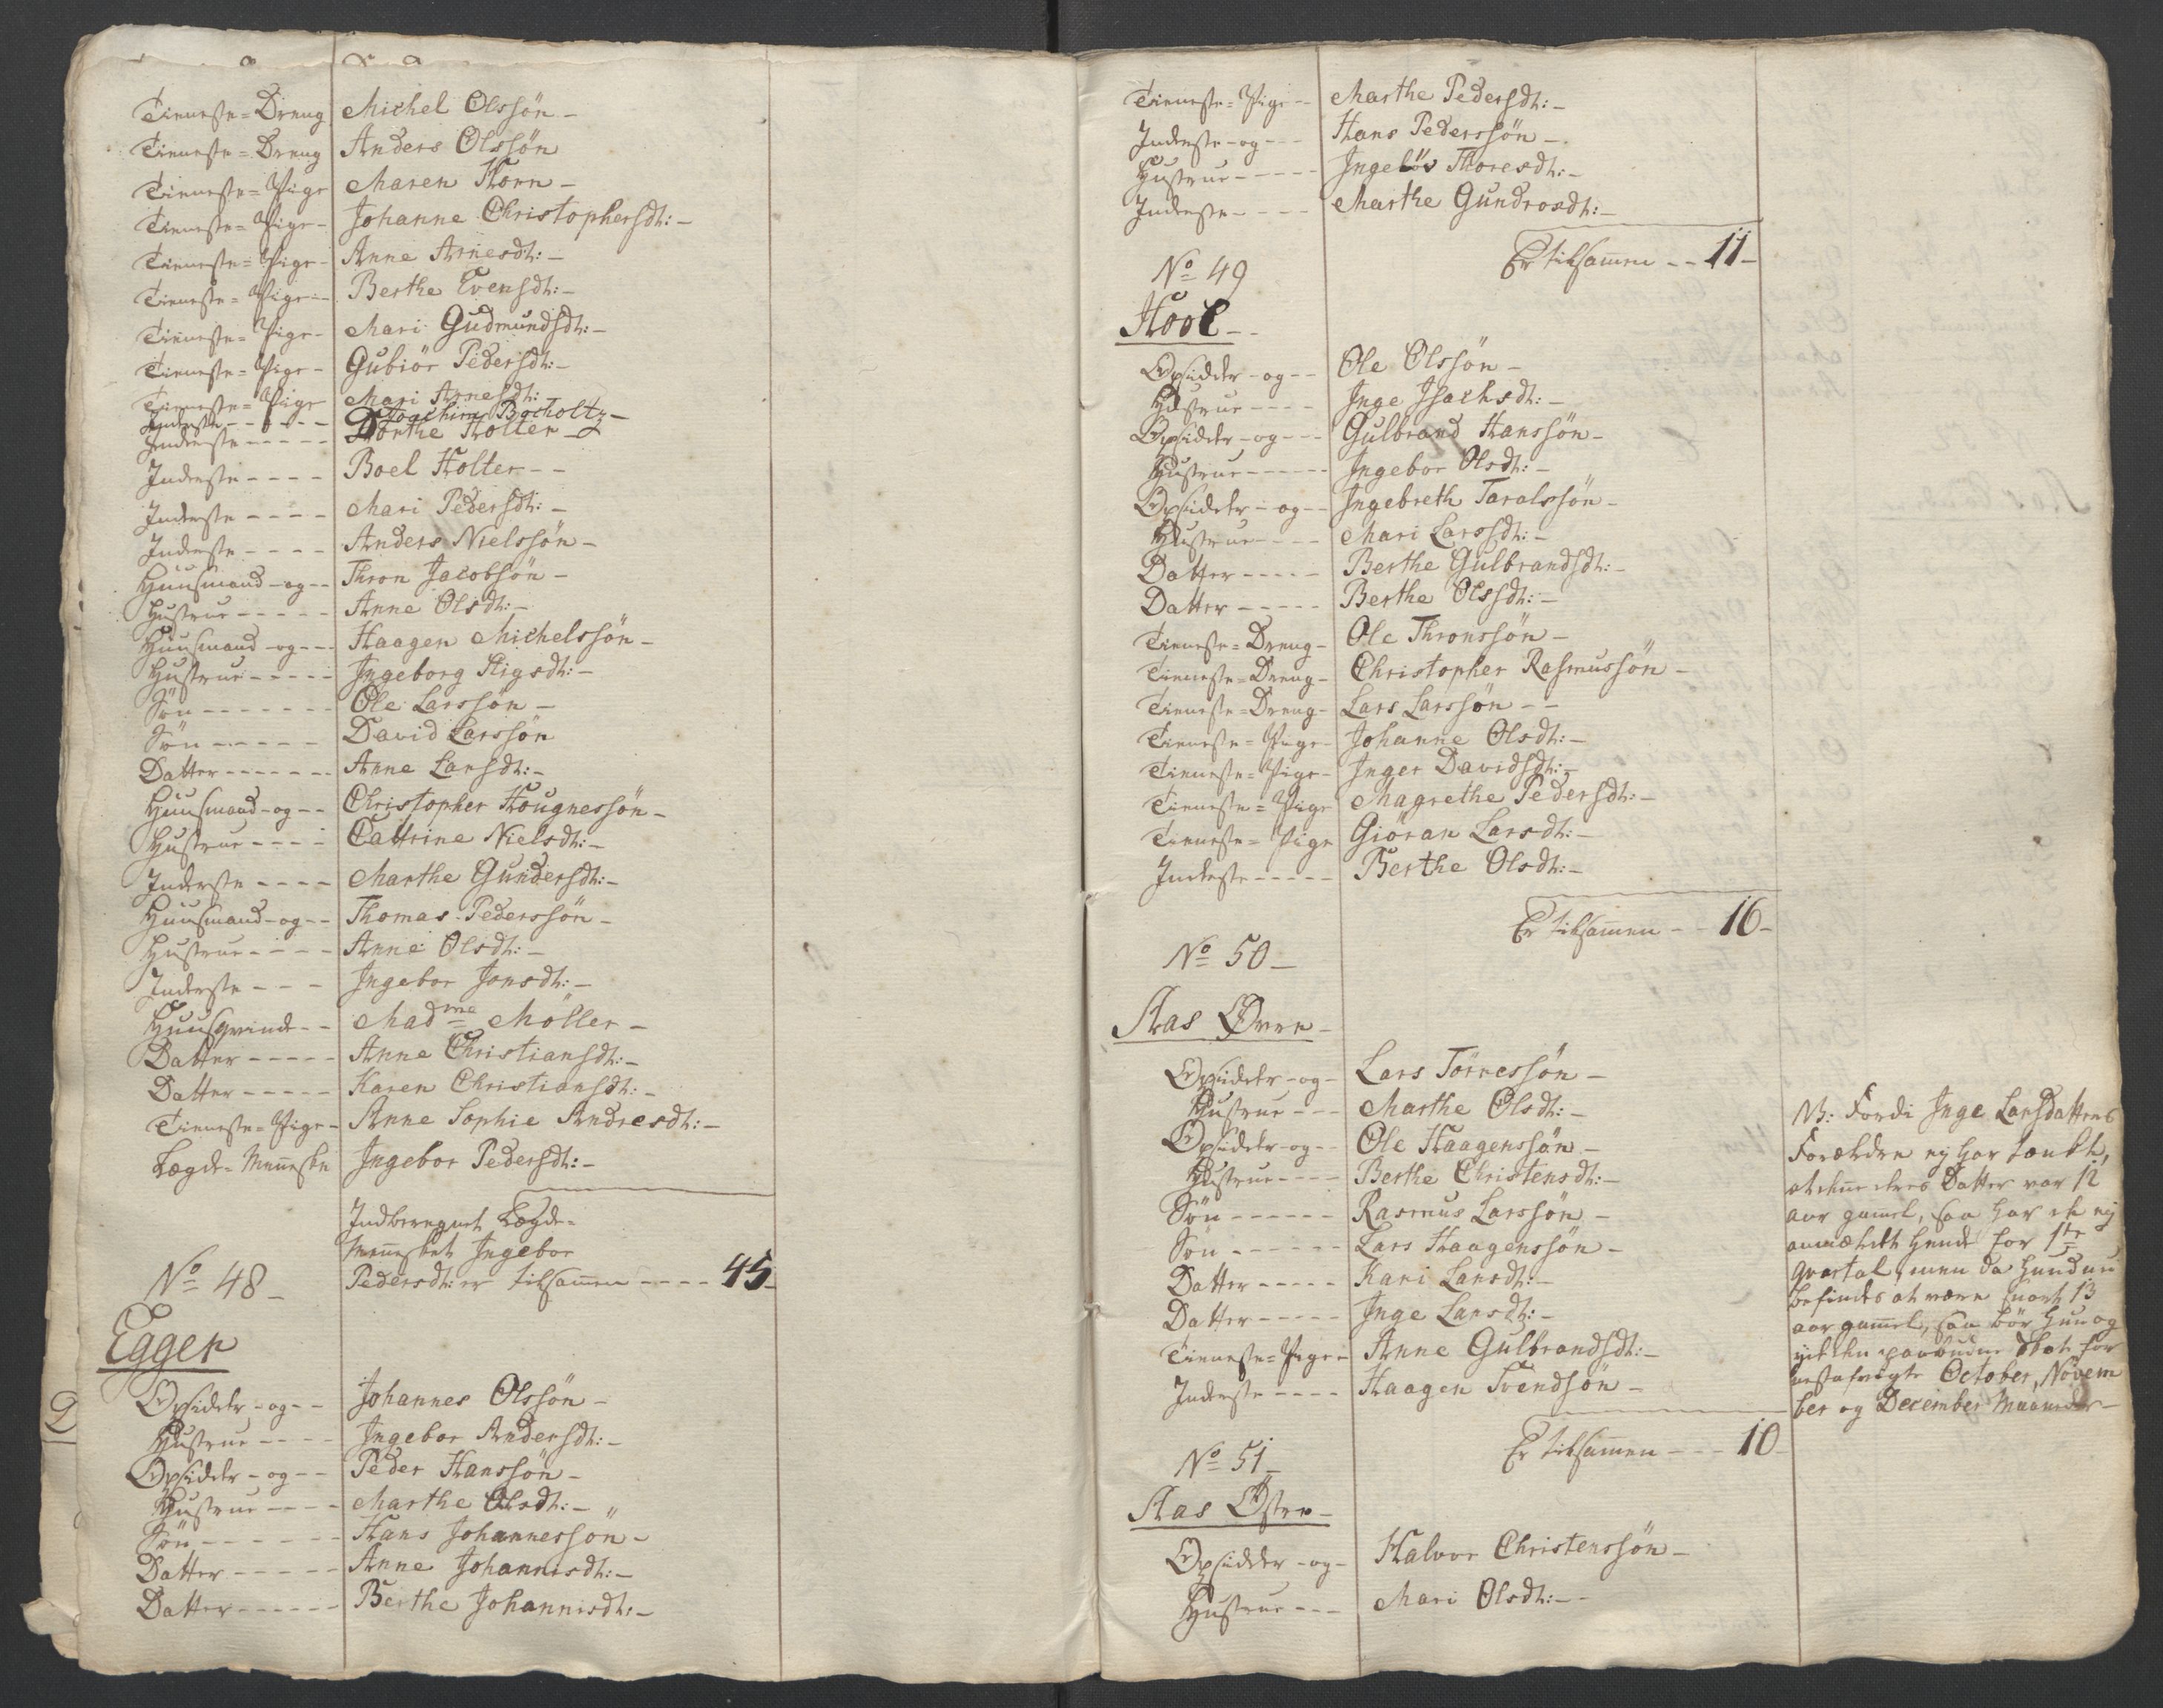 Tieneste=Dreng Michel Olssön -
Tieneste=Dreng Anders Olssön
Tieneste=Pige Maren Horn -
Tieneste=Pige - Johanne Christophersdt: -
Tieneste=Pige - Anne Arnesdt: -
Tieneste=Pige - Berthe Evensdt: -
Tieneste=Pige - Mari Gudmundsdt: -
Tieneste=Pige - Gubiör Pedersdt: -
Tieneste=Pige Mari Arnesdt:
Inderste - - - - - Joachim Bocholtz -
Inderste - - - - - Dorthe Holter -
Inderste - - - - Boel Holter - -
Inderste - - - - Mari Pedersdt: -
Inderste - - - - Anders Nielssön -
Huusmand - og - - Thron Jacobsön -
Hustrue - - - - - Anne Olsdt: -
Huusmand - og - - - Haagen Michelssön -
Hustrue - - - - - Ingeborg Stigsdt: -
Sön - - - - - - - Ole Larssön -
Sön - - - - - David Larssön
Datter - - - - - - - Anne Larsdt: -
Huusmand - og - - Christopher Hougnessön -
Hustrue - - - - Cattrine Nielsdt: -
Inderste - - - - Marthe Gundersdt: -
Huusmand - og - - Thomas Pederssön -
Hustrue - - - - - Anne Olsdt: -
Inderste - - - Ingebor Jonsdt: -
Huusqvinde - - Madme Möller -
Datter - - - - - Anne Christiansdt: -
Datter - - - - - Karen Christiansdt: -
Tieneste=Pige - Anne Sophie Andresdt: -
Lægde=Menneske Ingebor Pedersdt: -
Indberegnet Lægde=
Mennesket Ingebor
Pedersdt: er tilsammen - - - - 45 -
No 48 -
Egger
Opsidder - og - - Johannes Olssön -
Hustrue - - - - Ingebor Andersdt: -
Opsidder - og - - Peder Hanssön -
Hustrue - - - - Marthe Olsdt: -
Sön - - - - - - Hans Johannessön -
Datter - - - - - Anne Johannisdt: -
Datter - - - - - - Berthe Johannisdt: -
Tieneste=Pige - - Marthe Pedersdt: -
Inderste - og - - - Hans Pederssön -
Hustrue - - - - - Ingeløv Thoresdt: -
Inderste - - - - Marthe Gundrosdt: -
Er tilsammen - - 11 -
No 49
Hool - -
Opsidder - og - - Ole Olssön -
Hustrue - - - - Inge Isachsdt: -
Opsidder - og - - - Gulbrand Hanssön -
Hustrue - - - - - - Ingebor Olsdt: -
Opsidder - og - - Ingebreth Taralssön -
Hustrue - - - - Mari Larssdt: -
Datter - - - - - Berthe Gulbrandsdt: -
Datter - - - - - Berthe Olssdt: -
Tieneste=Dreng - Ole Thronssön -
Tieneste=Dreng - Christopher Rasmussön -
Tieneste=Dreng - Lars Larssön - -
Tieneste=Pige - Johanne Olsdt: -
Tieneste=Pige - Inger Davidsdt: -
Tieneste=Pige Magrethe Pedersdt: -
Tieneste=Pige Giöran Larsdt: -
Inderste - - - - - Berthe Olsdt: -
Er tilsammen - - 16 -
No 50 -
Aas Øvre -
Opsidder - og - Lars Törressön -
Hustrue - - - Marthe Olsdt: -
Opsidder - og - - Ole Haagenssön -
Hustrue - - - - Berthe Christensdt: -
Sön - - - - - - Rasmus Larssön -
Sön - - - - - - Lars Haagenssön -
Datter - - - - - Kari Larsdt: -
Datter - - - - - Inge Larsdt: -
Tieneste=Pige - Anne Gulbrandsdt: -
Inderste - - - - Haagen Svendsön -
Er tilsammen - - - 10 -
NB: Fordi Inge Larsdatters
Forældre ej har tænkt,
at denne deres Datter var 12
aar gamel, saa har de ej
anmældt hende for 1ste
qvartal, men da hund nu
befindes at være snart 13
aar gammel, saa bör hun og
yde den paabudne Skat for
October, Novem
ber og December Maaneder -
No 51 -
Aas Östre -
Opsidder - og - Halvor Christenssön -
Hustrue - - - Mari Olsdt: - -